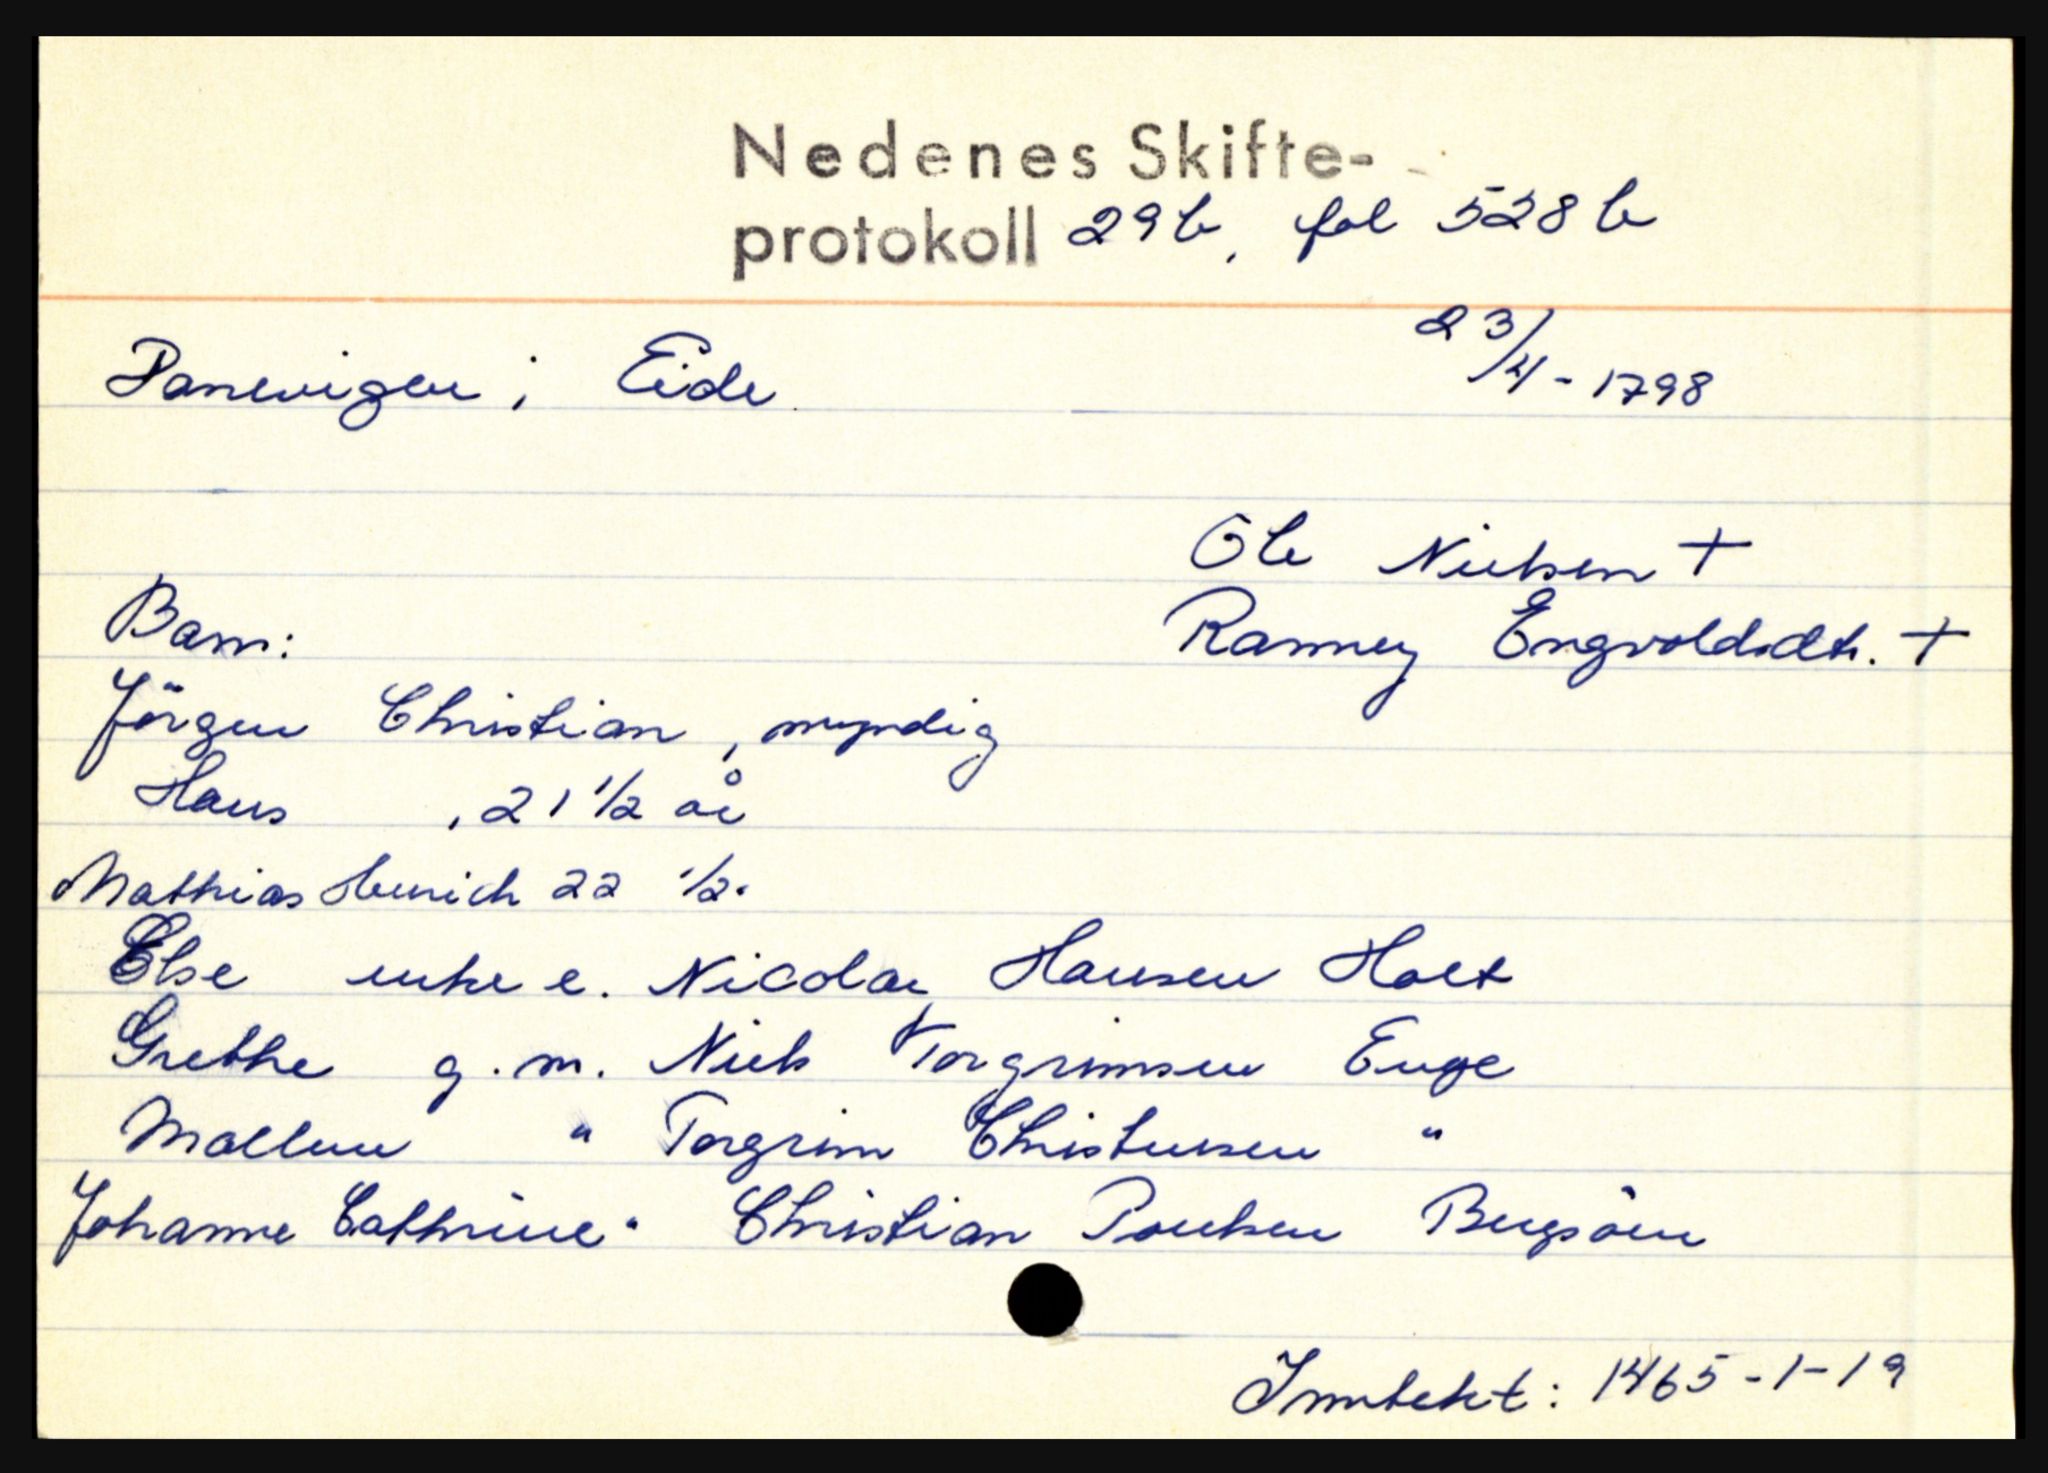 Nedenes Skifte-
protokoll 29b, fol 528b
Panevigen i Eide
23/4-1798
Ole Nielsen +
Barn:
Ranney Engvoldsdtr. +
Jörgen Christian, myndig
Hans , 21 1/2 år
Mathias Henrich 22 1/2.
Else enke e. Nicolai Hansen Holt
Grethe g.m. Niels Torgrimsen Enge
Mallene " Torgrim Christensen "
Johanne Cathrine " Christian Poulsen Bugsöen
Inntekt: 1465-1-19